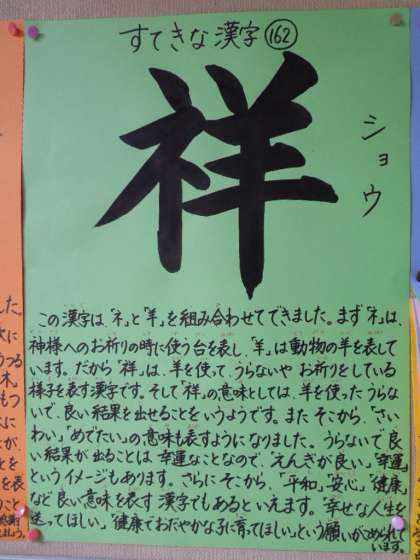 すてきな漢字 162
祥
ショウ
この漢字は、「ネ」と「羊」を組み合わせてできました。まず「ネ」は、
神様へのお祈りの時に使う台を表し、「羊」は動物の羊を表して
います。だから「祥」は、羊を使って、うらないや お祈りをしている
様子を表す漢字です。そして「祥」の意味としては、羊を使ったうらな
いで、良い結果を出せることをいうようです。また そこから、「さい
わい」「めでたい」の意味も表すようになりました。うらないで良
い結果が出ることは 幸運なことなので、「えんぎが良い」「幸運」
というイメージもあります。さらに そこから、「平和」「安心」「健康」
など 良い意味を表す 漢字でもあるといえます。「幸せな人生を
送ってほしい」「健康でおだやかな子に育ってほしい」という願いがこめられて
います。